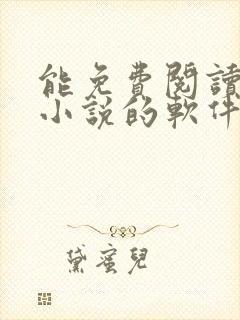 能免費閱讀
小說的軟件
黛蜜兒